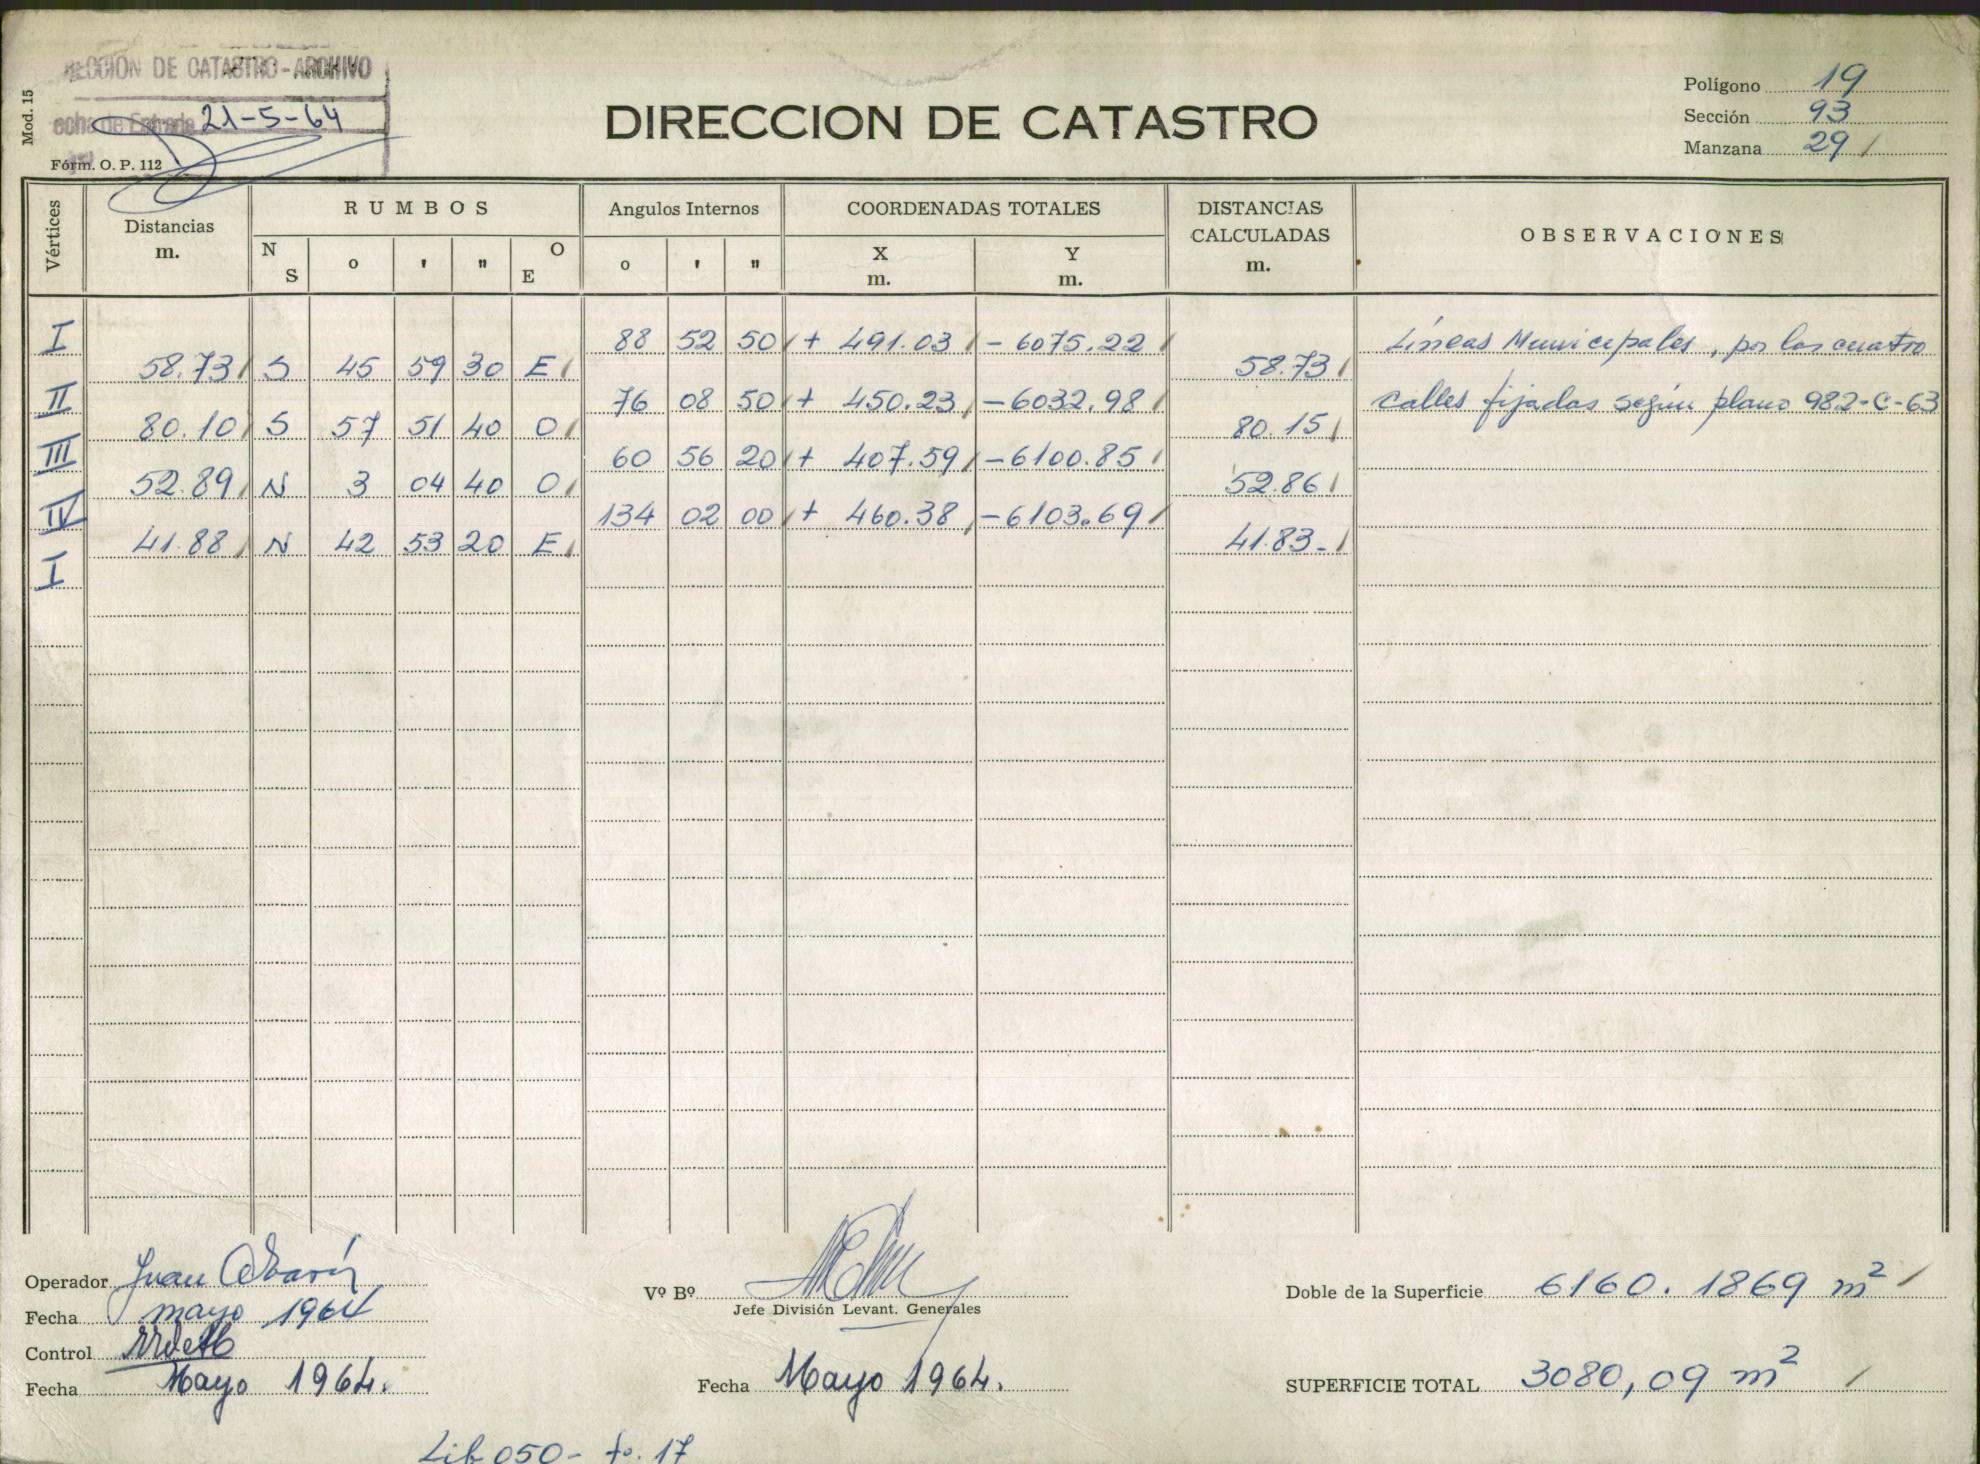 SECCION DE CATASTRO - ARCHIVO
Fecha de Entrada 21-5-64
Mod. 15
Fórm. O. P. 112
DIRECCION DE CATASTRO
Polígono 19
Sección 93
Manzana 29
Vértices Distancias m. RUMBOS Angulos Internos COORDENADAS TOTALES DISTANCIAS CALCULADAS m. OBSERVACIONES
N S o ' " O E o ' " X m. Y m.
I 88 52 50 + 491.03 - 6075.22 Líneas Municipales, por las cuatro
58.73 S 45 59 30 E 58.73
II 76 08 50 + 450.23 - 6032.98 calles fijadas según plano 982-C-63
80.10 S 57 51 40 O 80.15
III 60 56 20 + 407.59 - 6100.85
52.89 N 3 04 40 O 52.86
IV 134 02 00 + 460.38 - 6103.69
41.88 N 42 53 20 E 41.83
I
Operador Juan
Fecha mayo 1964
Control
Fecha Mayo 1964.
Vº Bº
Jefe División Levant. Generales
Fecha Mayo 1964.
Doble de la Superficie 6160.1869 m²
SUPERFICIE TOTAL 3080,09 m²
Lib 050 - fo. 17